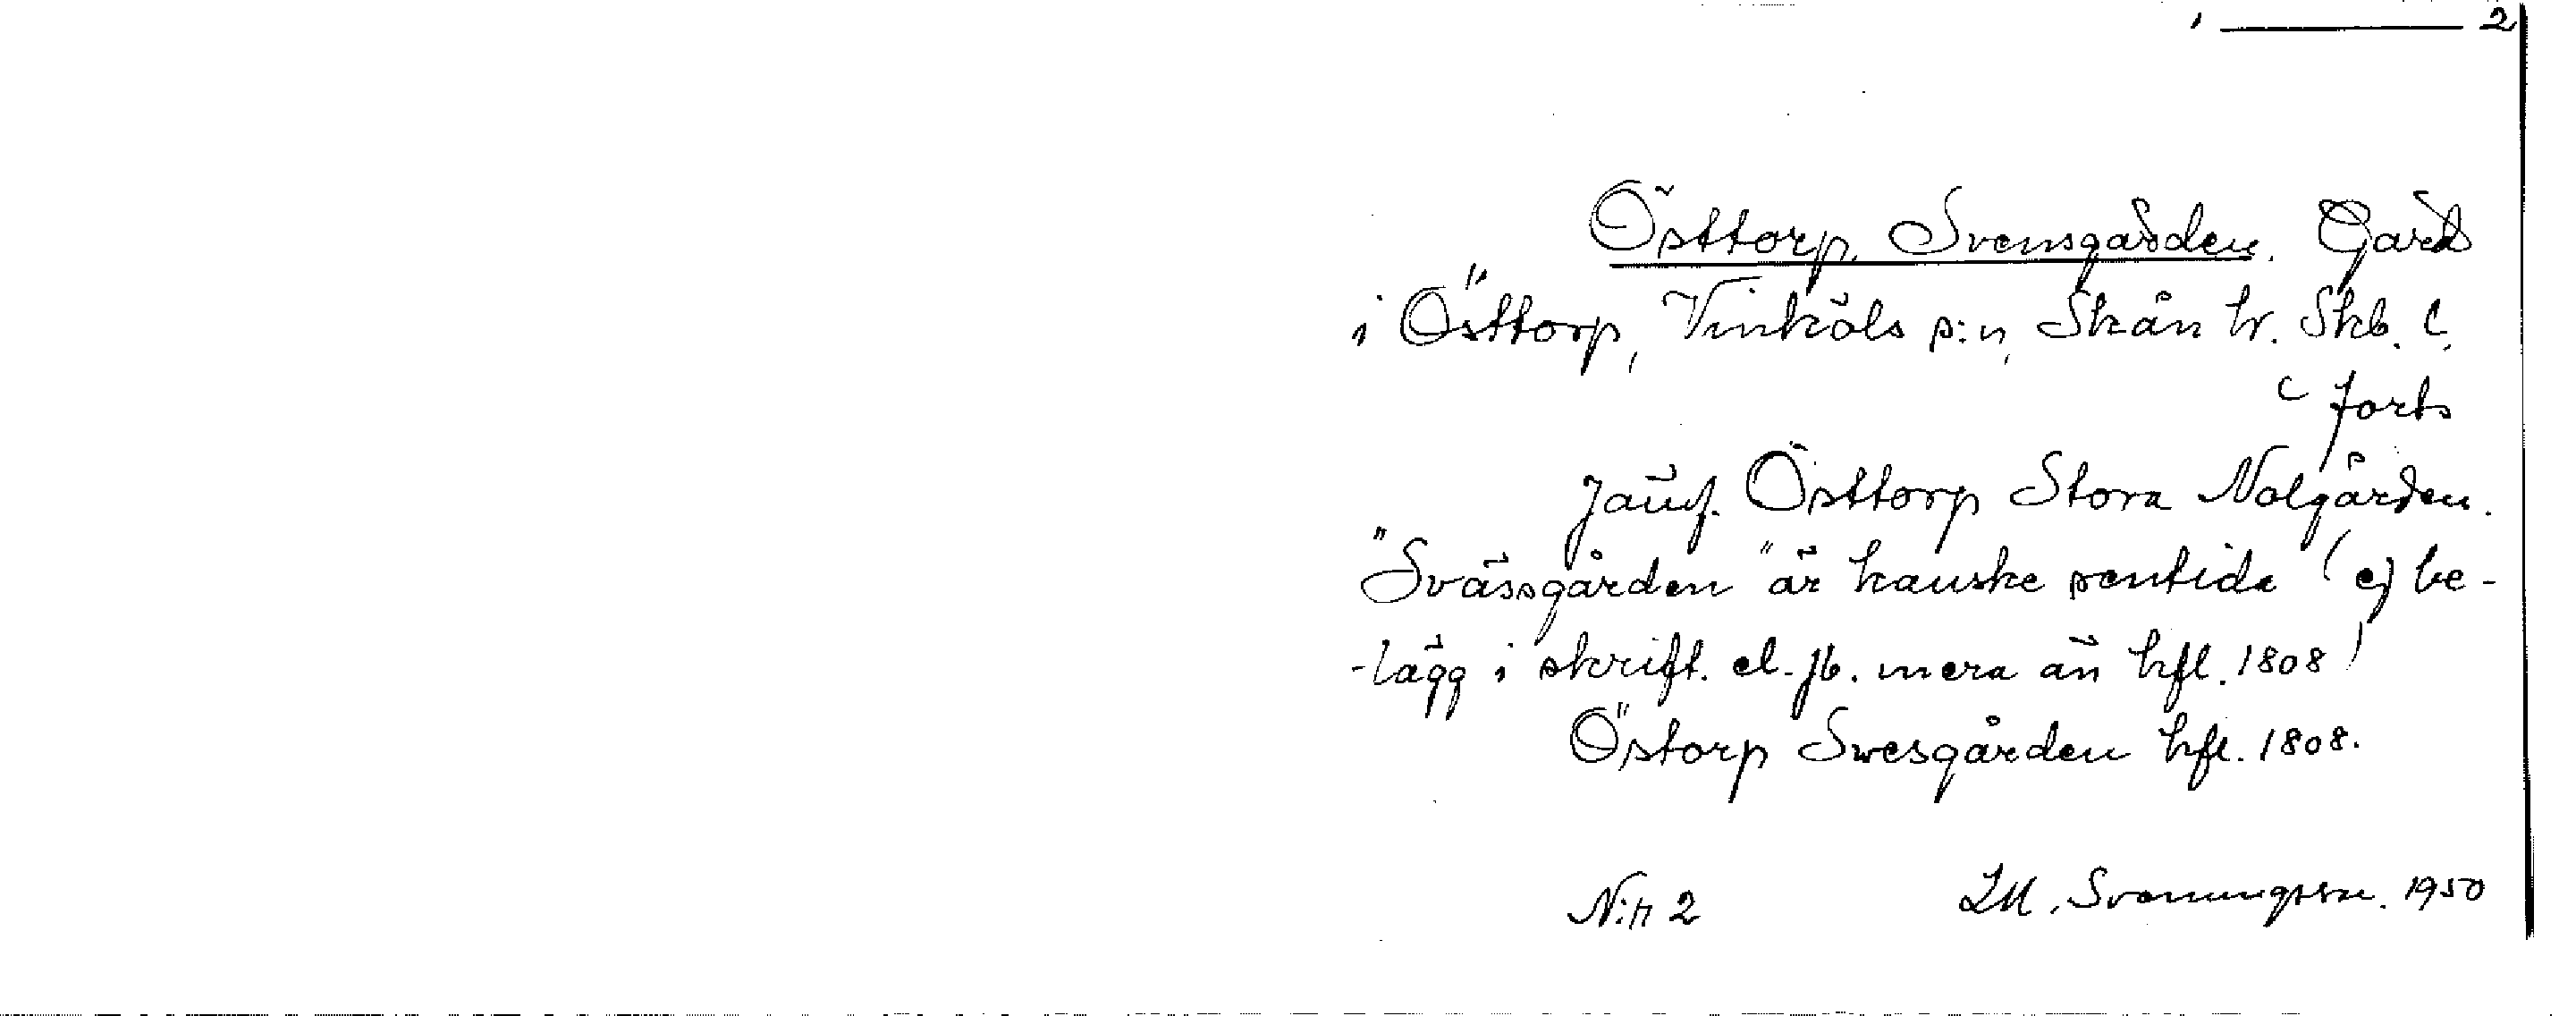 2
Östtorp, Svensgården. Gård
i Östtorp, Vinköls s:n, Skån hr. Skb. l.
forts
Jämf. Östtorp Stora Nolgården.
"Svässgården" är kanske sentida (ej be-
-lägg i skrift. el. jb. mera än hfl. 1808)
Östorp Swesgården hfl. 1808.
N:r 2 Svenungsson. 1950